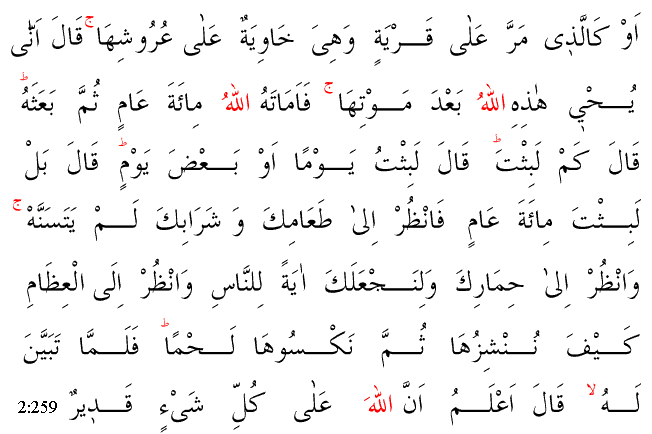 اَوْ كَالَّذٖى مَرَّ عَلٰى قَرْيَةٍ وَهِىَ خَاوِيَةٌ عَلٰى عُرُوشِهَاۚ قَالَ اَنّٰى
يُحْيٖ هٰذِهِ اللّٰهُ بَعْدَ مَوْتِهَاۚ فَاَمَاتَهُ اللّٰهُ مِائَةَ عَامٍ ثُمَّ بَعَثَهُؕ
قَالَ كَمْ لَبِثْتَؕ قَالَ لَبِثْتُ يَوْمًا اَوْ بَعْضَ يَوْمٍؕ قَالَ بَلْ
لَبِثْتَ مِائَةَ عَامٍ فَانْظُرْ اِلٰى طَعَامِكَ وَ شَرَابِكَ لَمْ يَتَسَنَّهْۚ
وَانْظُرْ اِلٰى حِمَارِكَ وَلِنَجْعَلَكَ اٰيَةً لِلنَّاسِ وَانْظُرْ اِلَى الْعِظَامِ
كَيْفَ نُنْشِزُهَا ثُمَّ نَكْسُوهَا لَحْمًاؕ فَلَمَّا تَبَيَّنَ
لَهُۙ قَالَ اَعْلَمُ اَنَّ اللّٰهَ عَلٰى كُلِّ شَىْءٍ قَدٖيرٌ 2:259